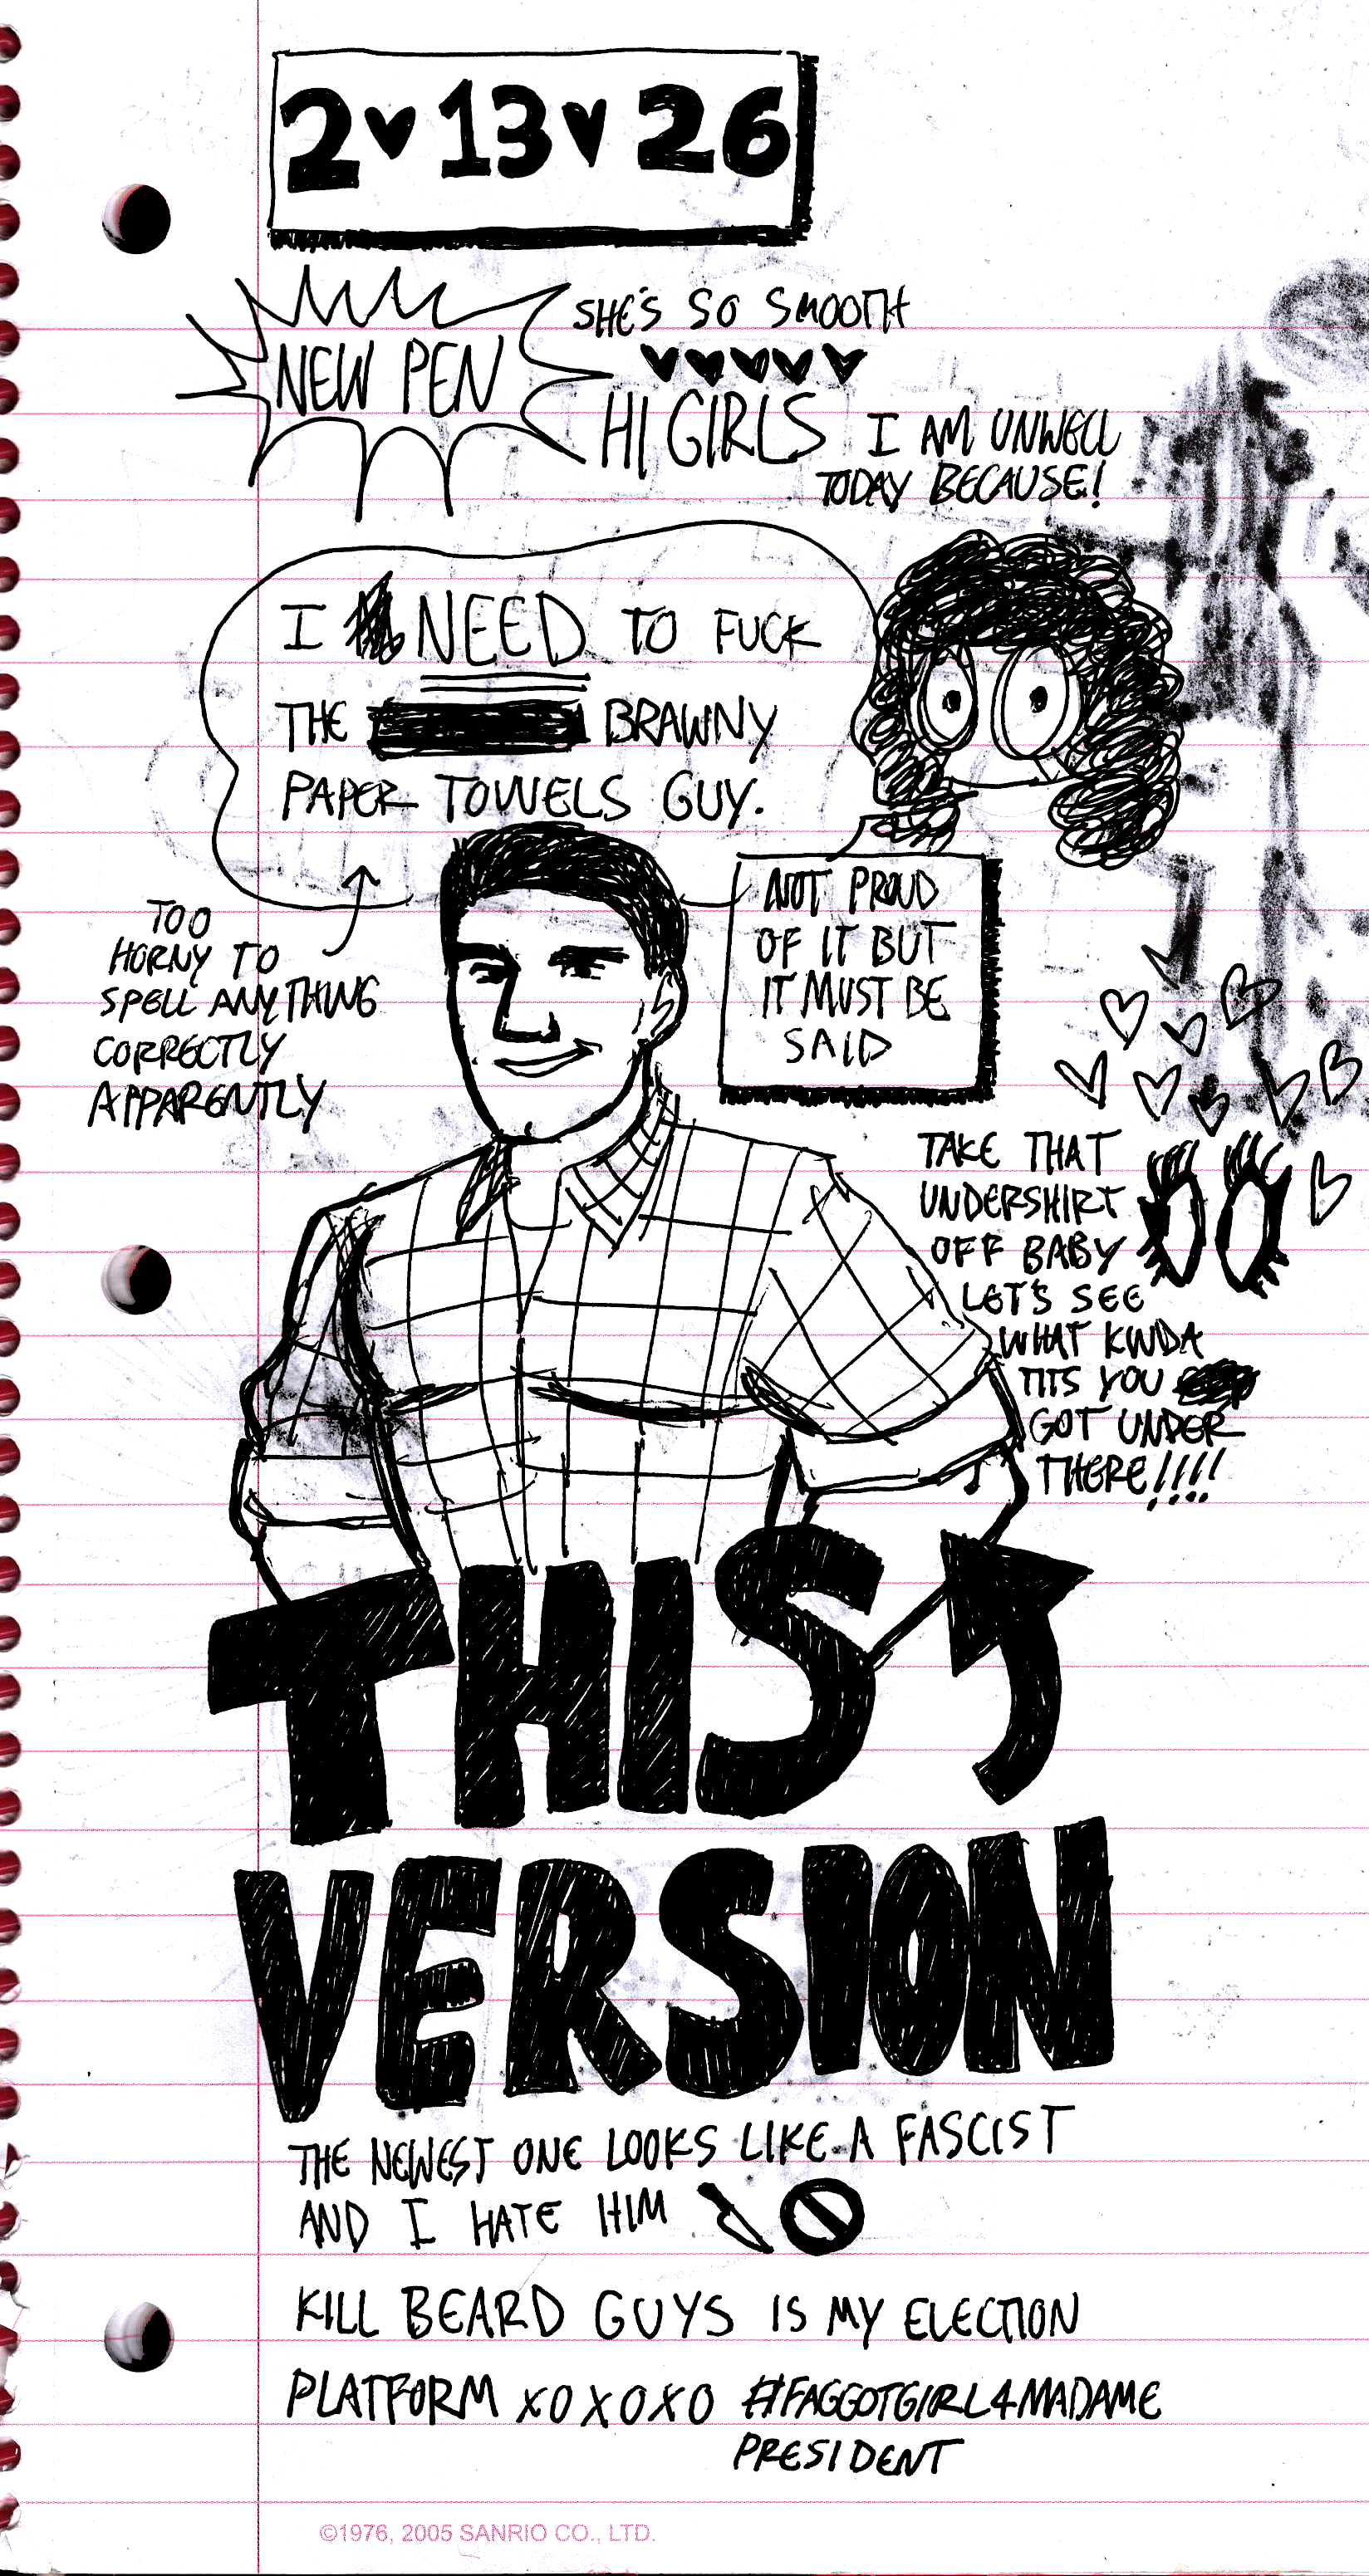 2♥13♥26
NEW PEN
SHE'S SO SMOOTH
♥♥♥♥♥
HI GIRLS I AM UNWELL
TODAY BECAUSE!
I NEED TO FUCK
THE BRAWNY
PAPER TOWELS GUY.
TOO
HORNY TO
SPELL ANYTHING
CORRECTLY
APPARENTLY
NOT PROUD
OF IT BUT
IT MUST BE
SAID
TAKE THAT
UNDERSHIRT
OFF BABY
LET'S SEE
WHAT KINDA
TITS YOU
GOT UNDER
THERE!!!!
THIS
VERSION
THE NEWEST ONE LOOKS LIKE A FASCIST
AND I HATE HIM
KILL BEARD GUYS IS MY ELECTION
PLATFORM XOXOXO #FAGGOTGIRL4MADAME
PRESIDENT
©1976, 2005 SANRIO CO., LTD.